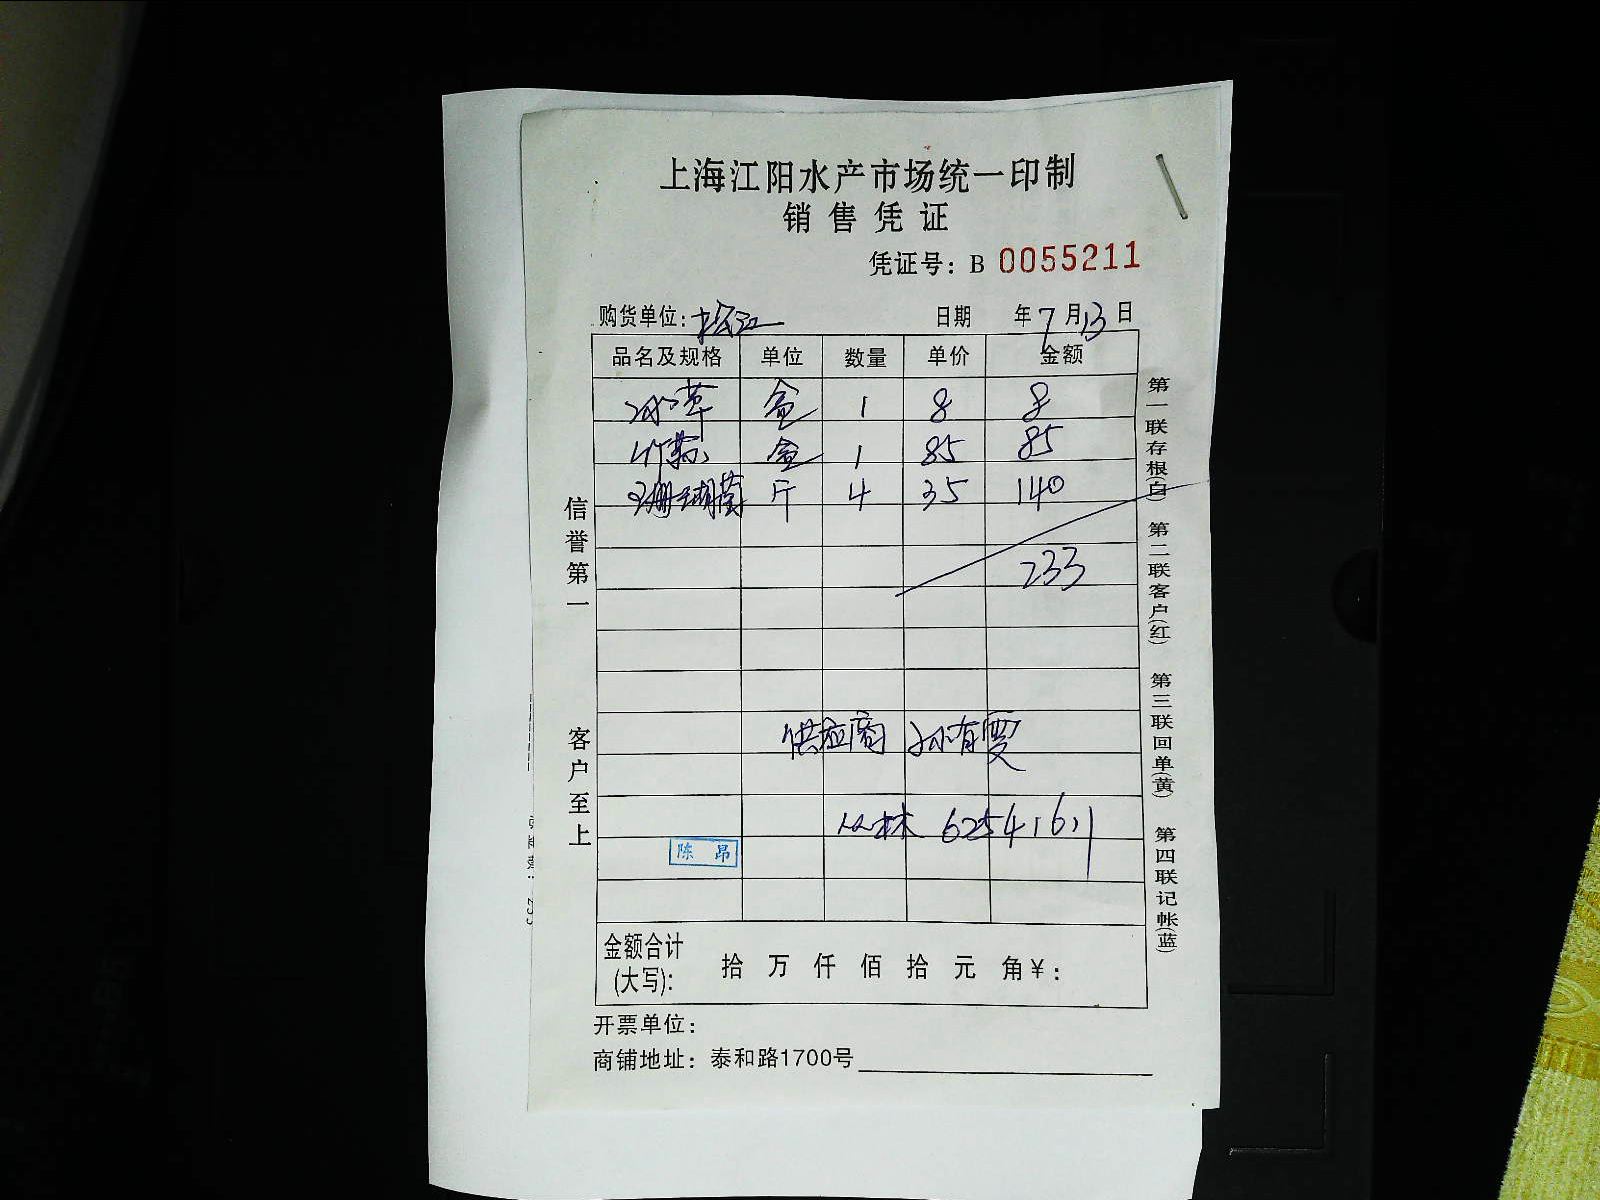 上海江阳水产市场统一印制
销售凭证
凭证号：B 0055211
购货单位：松江 日期 年7月13日
品名及规格 单位 数量 单价 金额
冰草 盒 1 8 8
竹荪 盒 1 85 85
珊瑚菌 斤 4 35 140
233
供应商 孙有雯
丛林 62541611
陈昂
金额合计
(大写)： 拾 万 仟 佰 拾 元 角￥：
开票单位：
商铺地址：泰和路1700号
信誉第一
客户至上
第一联存根(白)
第二联客户(红)
第三联回单(黄)
第四联记帐(蓝)